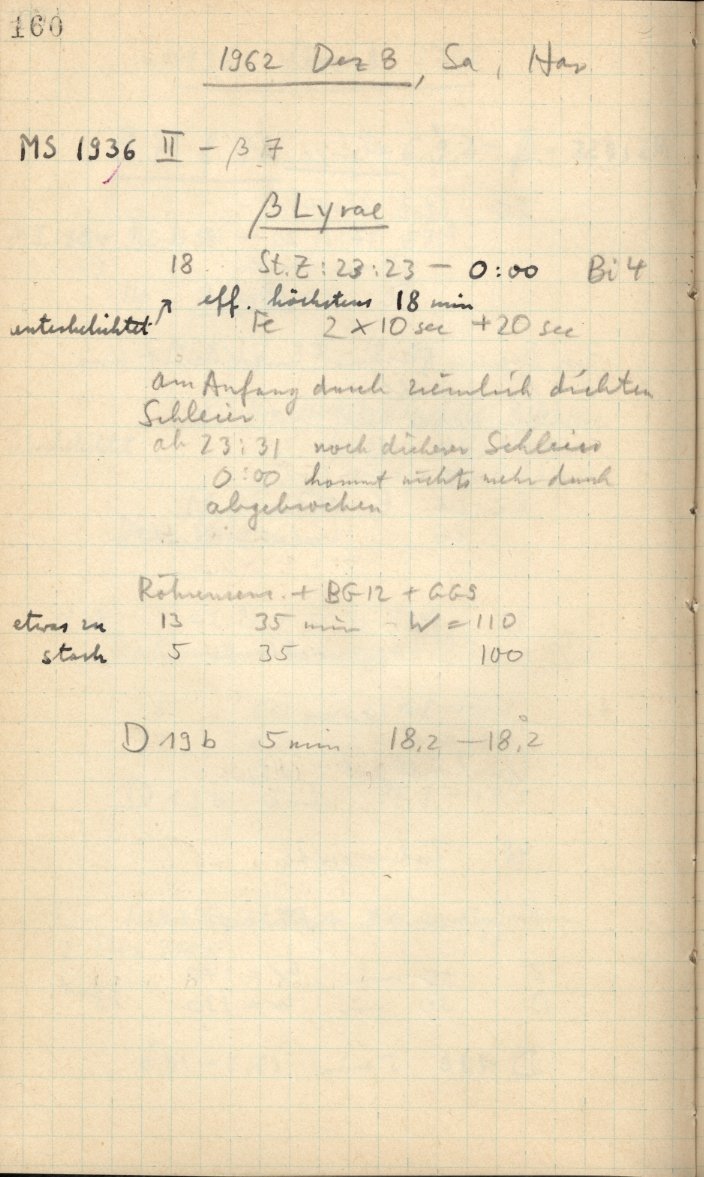 160
1962 Dez 8, Sa, Hax
MS 1936 II - β 7
β Lyrae
18 St.Z: 23:23 - 0:00 Bi 4
↗ eff. höchstens 18 min
unterbelichtet Fe 2 x 10 sec + 20 sec
am Anfang durch ziemlich dichten
Schleier
ab 23:31 noch dickerer Schleier
0:00 kommt nichts mehr durch
abgebrochen
Röhrensens. + BG 12 + GG5
etwas zu 13 35 min W = 110
stark 5 35 100
D 19 b 5 min 18,2 - 18,°2